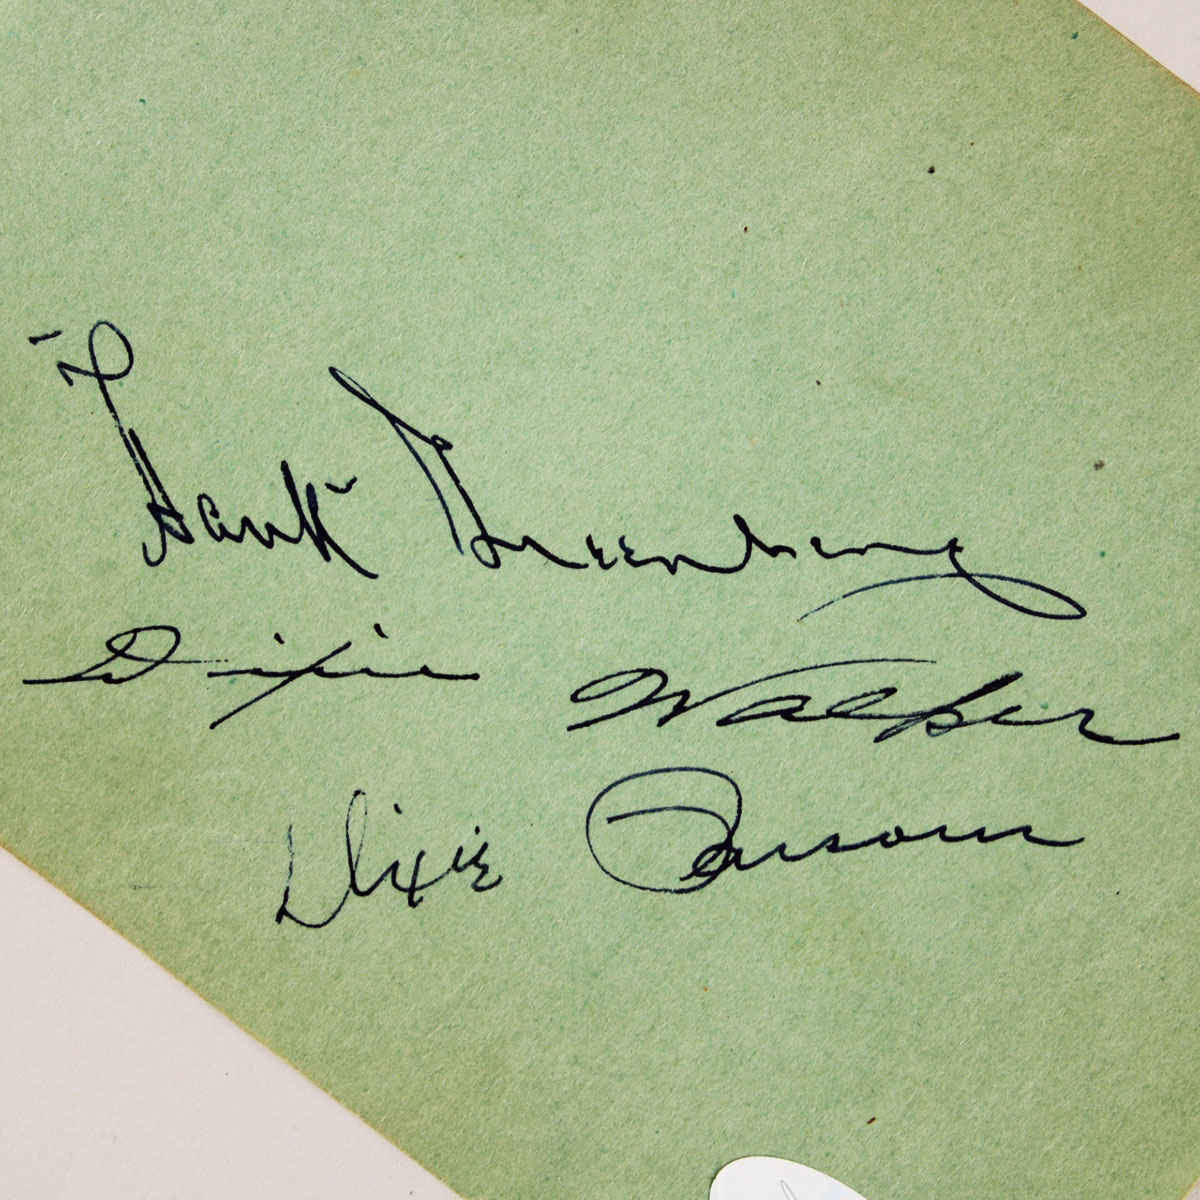 Hank Greenberg
Dixie Walker
Dixie Parsons